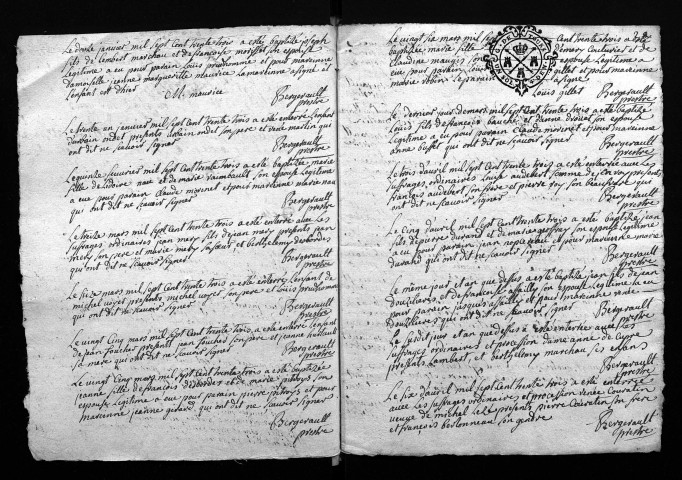 Le dixe janvier mil sept Cent trente trois a esté baptizé joseph
fils de Lambert marchau et de françoise son espouse
Legitime a eu pour parain Louis prudhomme et pour maraienne
Damoiselle jeanne margueritte maurice Lamaraienne a signé et
L'enfant est d'hier
M. maurice
Bergerault
prestre
Le trente en janvier mil sept Cent trente trois a esté enterré L'enfant
presents son pere et rené martin qui
ont dit ne scavoir signer
Bergerault
prestre
Le quinze feuvrier mil sept Cent trente trois a esté baptizée marie
fille de naau et de marie raimbault son espouse Legitime
a eue pour parain Claude morenet et pour maraienne marie naau
qui ont dit ne scavoir signer
Bergerault
prestre
Le treize mars mil sept Cent trente trois a esté enterré avec les
suffrages ordinaires jean mery fils de jean mery presents jean
mery son pere et marie et berthelemy desbordes
qui ont dit ne scavoir signer
Bergerault
prestre
Le seize mars mil sept Cent trente trois a esté enterré L'enfant de
michel voyer presents michel voyer son pere et Louis prudhomme
qui ont dit ne scavoir signer
Bergerault
prestre
Le vingt Cinq mars mil sept Cent trente trois a esté enterré L'enfant
de jean foucher presents jean foucher son pere et jeanne
sa mere qui ont dit ne scavoir signer
Bergerault
prestre
Le vingt Cinq mars mil sept Cent trente trois a esté baptizée
jeanne fille de françois desbordes et de marie pitroys son
espouse Legitime a eue pour parain pierre pitroys et pour
maraienne jeanne girard qui ont dit ne scavoir signer
Bergerault
prestre
Le vingt six mars mil sept Cent trente trois a esté
baptizée marie fille d'emery Couturier et de
Claudine maugis son espouse Legitime a
eue pour parain Louis gillet et pour maraienne
marie robin Le parain a signé
Louis gillet
Bergerault
prestre
Le dernier jour de mars mil sept Cent trente trois a esté baptizé
Louis fils de françois et d'anne son espouse
Legitime a eu pour parain Claude morenet et pour maraienne
anne qui ont dit ne scavoir signer
Bergerault
prestre
Le trois d'avril mil sept Cent trente trois a esté enterrée avec les
suffrages ordinaires Louise audebert femme de presents
françois audebert son frere et pierre roy son beaufrere qui
ont dit ne scavoir signer
Bergerault
prestre
Le Cinq d'avril mil sept Cent trente trois a esté baptizé jean
fils de pierre durand et de marie roy son espouse Legitime
a eu pour parain jean et pour maraienne marie
durand qui ont dit ne scavoir signer
Bergerault
prestre
Le même jour et an que dessus a esté baptizé jean fils de jean
et de françoise son espouse Legitime a eu
pour parain et pour maraienne renée
qui ont dit ne scavoir signer
Bergerault
prestre
Le susdit jour et an que dessus a esté enterrée avec les
suffrages ordinaires et procession dame anne
presents Lambert et berthelemy marchau ses enfans
Bergerault
prestre
Le six d'avril mil sept Cent trente trois a esté enterrée
avec les suffrages ordinaires et procession renée Couratin
veuve de michel presents pierre Couratin son frere
et françois bessonneau son gendre
Bergerault
prestre